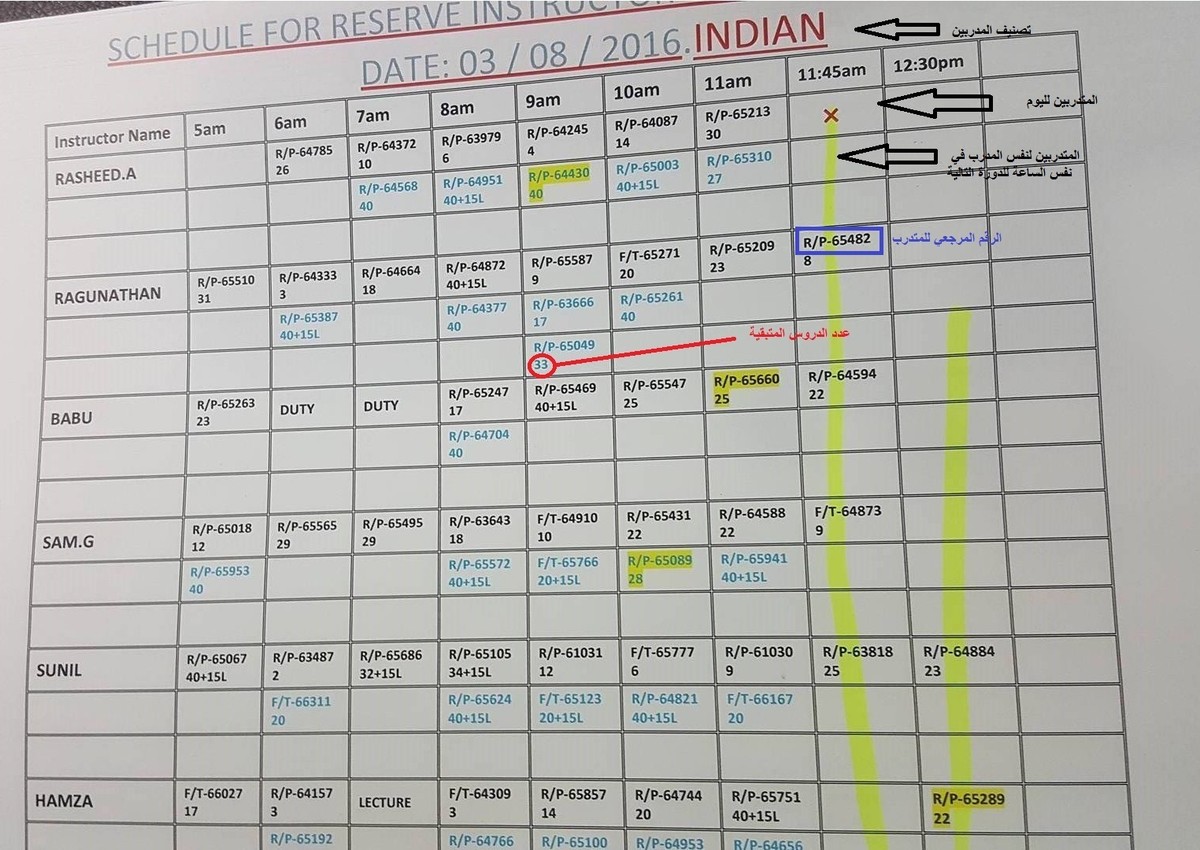 SCHEDULE FOR RESERVE INSTRUCTOR
DATE: 03 / 08 / 2016.INDIAN
تصنيف المدربين
Instructor Name 5am 6am 7am 8am 9am 10am 11am 11:45am 12:30pm
المتدربين لليوم
RASHEED.A R/P-64785 R/P-64372 R/P-63979 R/P-64245 R/P-64087 R/P-65213 X
26 10 6 4 14 30
المتدربين لنفس المدرب في
نفس الساعة للدورة التالية
R/P-64568 R/P-64951 R/P-64430 R/P-65003 R/P-65310
40 40+15L 40 40+15L 27
الرقم المرجعي للمتدرب
RAGUNATHAN R/P-65510 R/P-64333 R/P-64664 R/P-64872 R/P-65587 F/T-65271 R/P-65209 R/P-65482
31 3 18 40+15L 9 20 23 8
R/P-65387 R/P-64377 R/P-63666 R/P-65261
40+15L 40 17 40
عدد الدروس المتبقية
R/P-65049
33
BABU R/P-65263 DUTY DUTY R/P-65247 R/P-65469 R/P-65547 R/P-65660 R/P-64594
23 17 40+15L 25 25 22
R/P-64704
40
SAM.G R/P-65018 R/P-65565 R/P-65495 R/P-63643 F/T-64910 R/P-65431 R/P-64588 F/T-64873
12 29 29 18 10 22 22 9
R/P-65953 R/P-65572 F/T-65766 R/P-65089 R/P-65941
40 40+15L 20+15L 28 40+15L
SUNIL R/P-65067 R/P-63487 R/P-65686 R/P-65105 R/P-61031 F/T-65777 R/P-61030 R/P-63818 R/P-64884
40+15L 2 32+15L 34+15L 12 6 9 25 23
F/T-66311 R/P-65624 F/T-65123 R/P-64821 F/T-66167
20 40+15L 20+15L 40+15L 20
HAMZA F/T-66027 R/P-64157 LECTURE F/T-64309 R/P-65857 R/P-64744 R/P-65751 R/P-65289
17 3 3 14 20 40+15L 22
R/P-65192 R/P-64766 R/P-65100 R/P-64953 R/P-64656